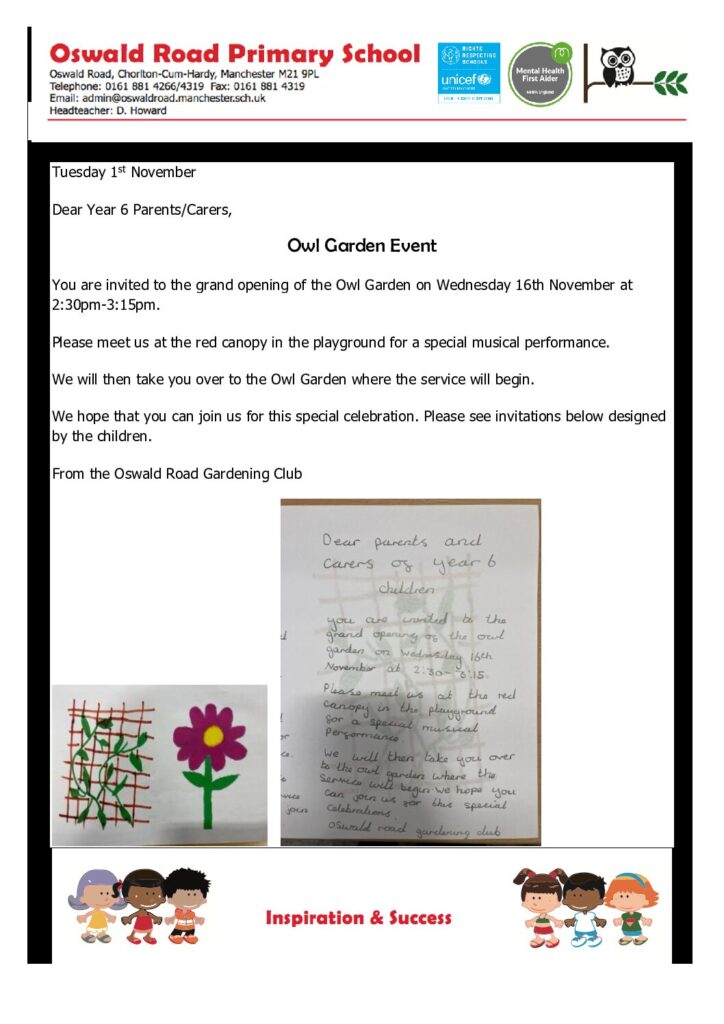 Oswald Road Primary School
Oswald Road, Chorlton-Cum-Hardy, Manchester M21 9PL
Telephone: 0161 881 4266/4319 Fax: 0161 881 4319
Email: admin@oswaldroad.manchester.sch.uk
Headteacher: D. Howard
RIGHTS
RESPECTING
SCHOOLS
unicef
Mental Health
First Aider
Tuesday 1st November
Dear Year 6 Parents/Carers,
Owl Garden Event
You are invited to the grand opening of the Owl Garden on Wednesday 16th November at
2:30pm-3:15pm.
Please meet us at the red canopy in the playground for a special musical performance.
We will then take you over to the Owl Garden where the service will begin.
We hope that you can join us for this special celebration. Please see invitations below designed
by the children.
From the Oswald Road Gardening Club
Dear parents and
Carers of year 6
children
you are invited to the
grand opening of the owl
garden on Wednesday 16th
November at 2:30-3:15.
Please meet us at the red
canopy in the playground
for a special musical
Performance.
We will then take you over
to the owl garden where the
Service will begin. We hope you
Can join us for this special
celebrations.
join
oswald road gardening club
Inspiration & Success